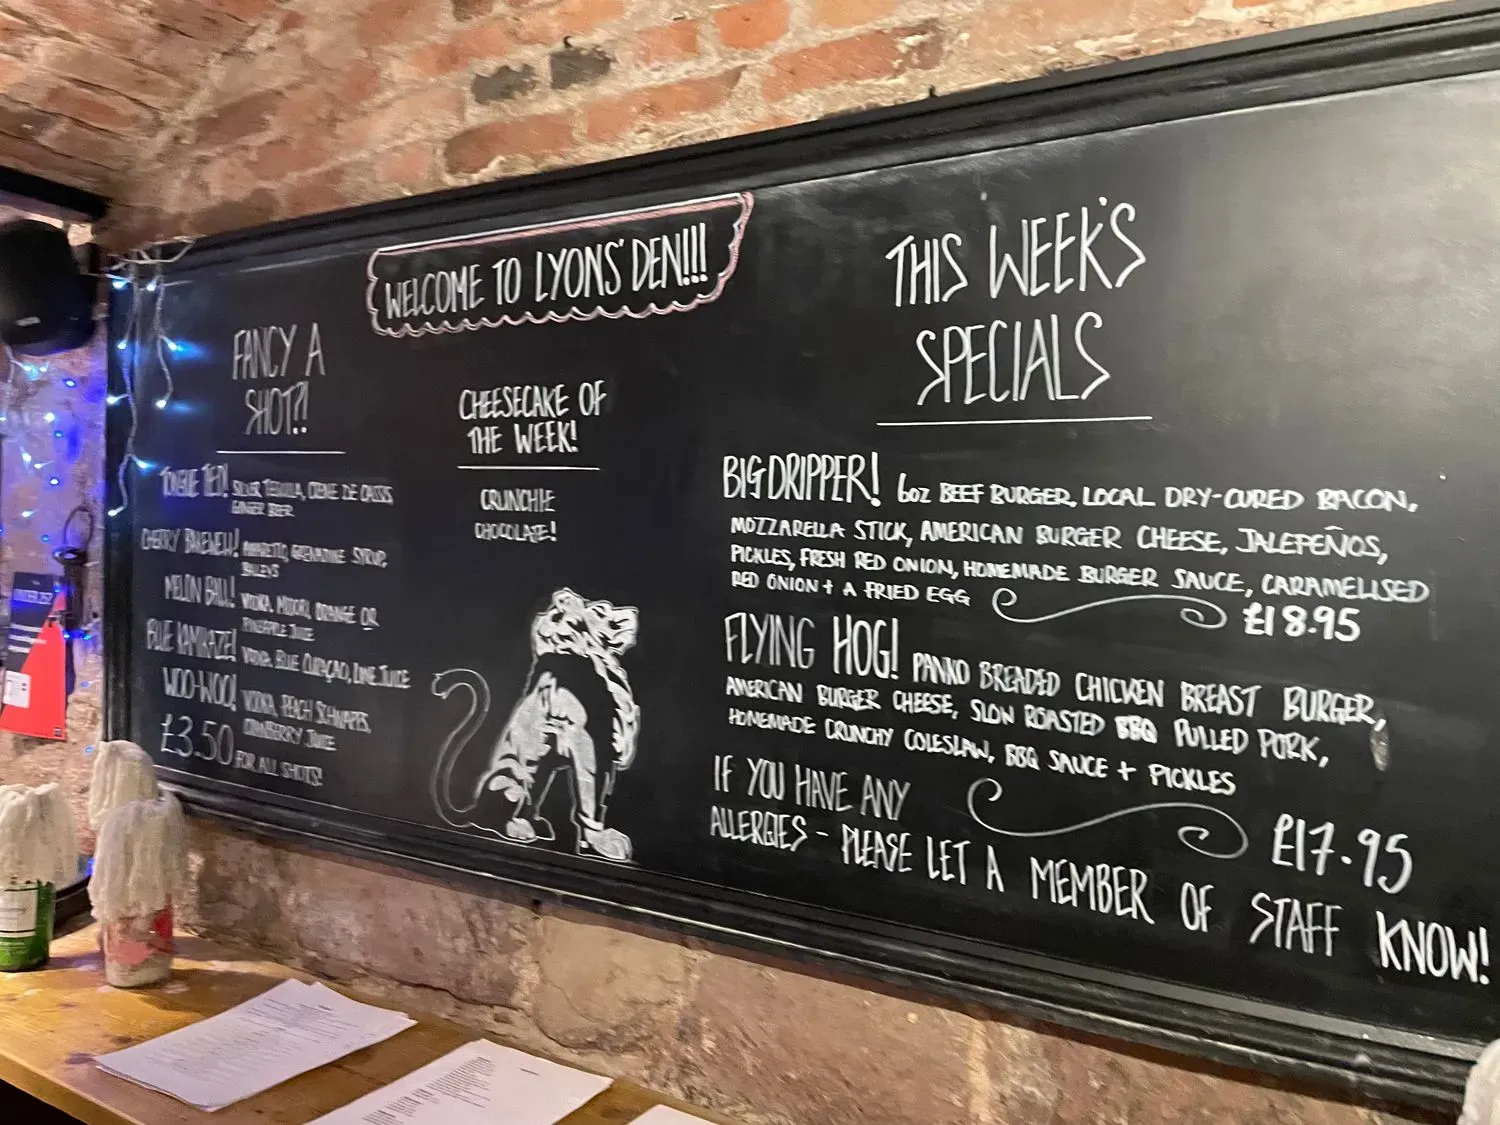 WELCOME TO LYONS' DEN!!!
FANCY A
SHOT?!
TONGUE TIED! SILVER TEQUILA, CREME DE CASSIS
GINGER BEER
CHERRY BAKEWELL! AMARETTO, GRENADINE SYRUP,
BAILEYS
MELON BALL! VODKA, MIDORI, ORANGE OR
PINEAPPLE JUICE
BLUE KAMIKAZE! VODKA, BLUE CURAÇAO, LIME JUICE
WOO-WOO! VODKA, PEACH SCHNAPPS,
CRANBERRY JUICE
£3.50 FOR ALL SHOTS!
CHEESECAKE OF
THE WEEK!
CRUNCHIE
CHOCOLATE!
THIS WEEK'S
SPECIALS
BIG DRIPPER! 6oz BEEF BURGER, LOCAL DRY-CURED BACON,
MOZZARELLA STICK, AMERICAN BURGER CHEESE, JALEPEÑOS,
PICKLES, FRESH RED ONION, HOMEMADE BURGER SAUCE, CARAMELISED
RED ONION + A FRIED EGG
£18.95
FLYING HOG! PANKO BREADED CHICKEN BREAST BURGER,
AMERICAN BURGER CHEESE, SLOW ROASTED BBQ PULLED PORK,
HOMEMADE CRUNCHY COLESLAW, BBQ SAUCE + PICKLES
£17.95
IF YOU HAVE ANY
ALLERGIES - PLEASE LET A MEMBER OF STAFF KNOW!
UNDER 25?